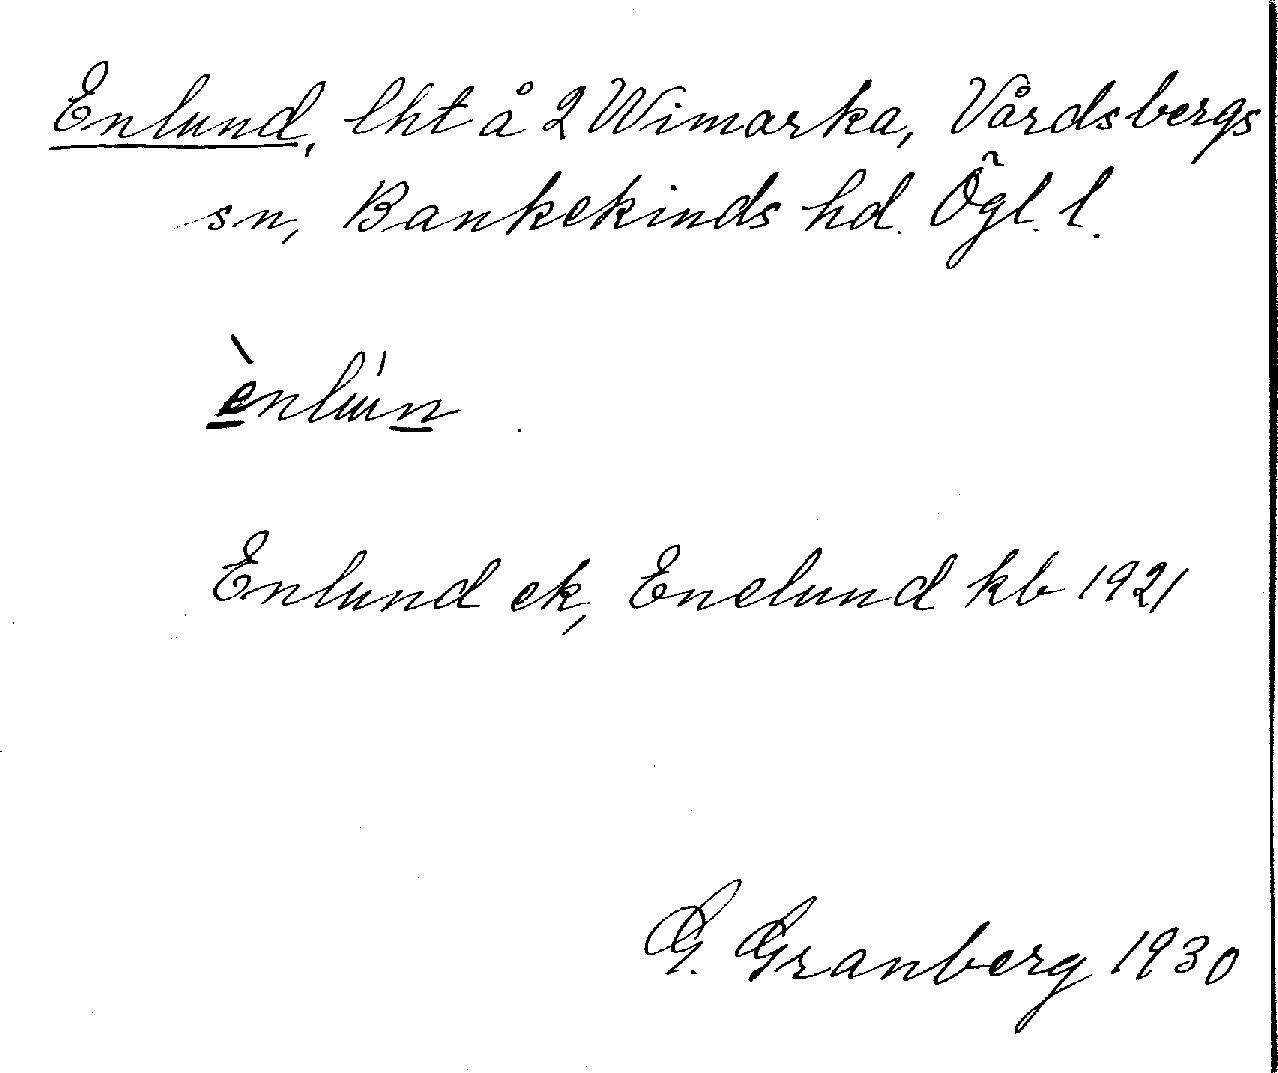 Enlund, lht å 2 Wimarka, Vårdsbergs
sn, Bankekinds hd. Ögl. l.
ènlún
Enlund ek, Enelund kb 1921
G. Granberg 1930